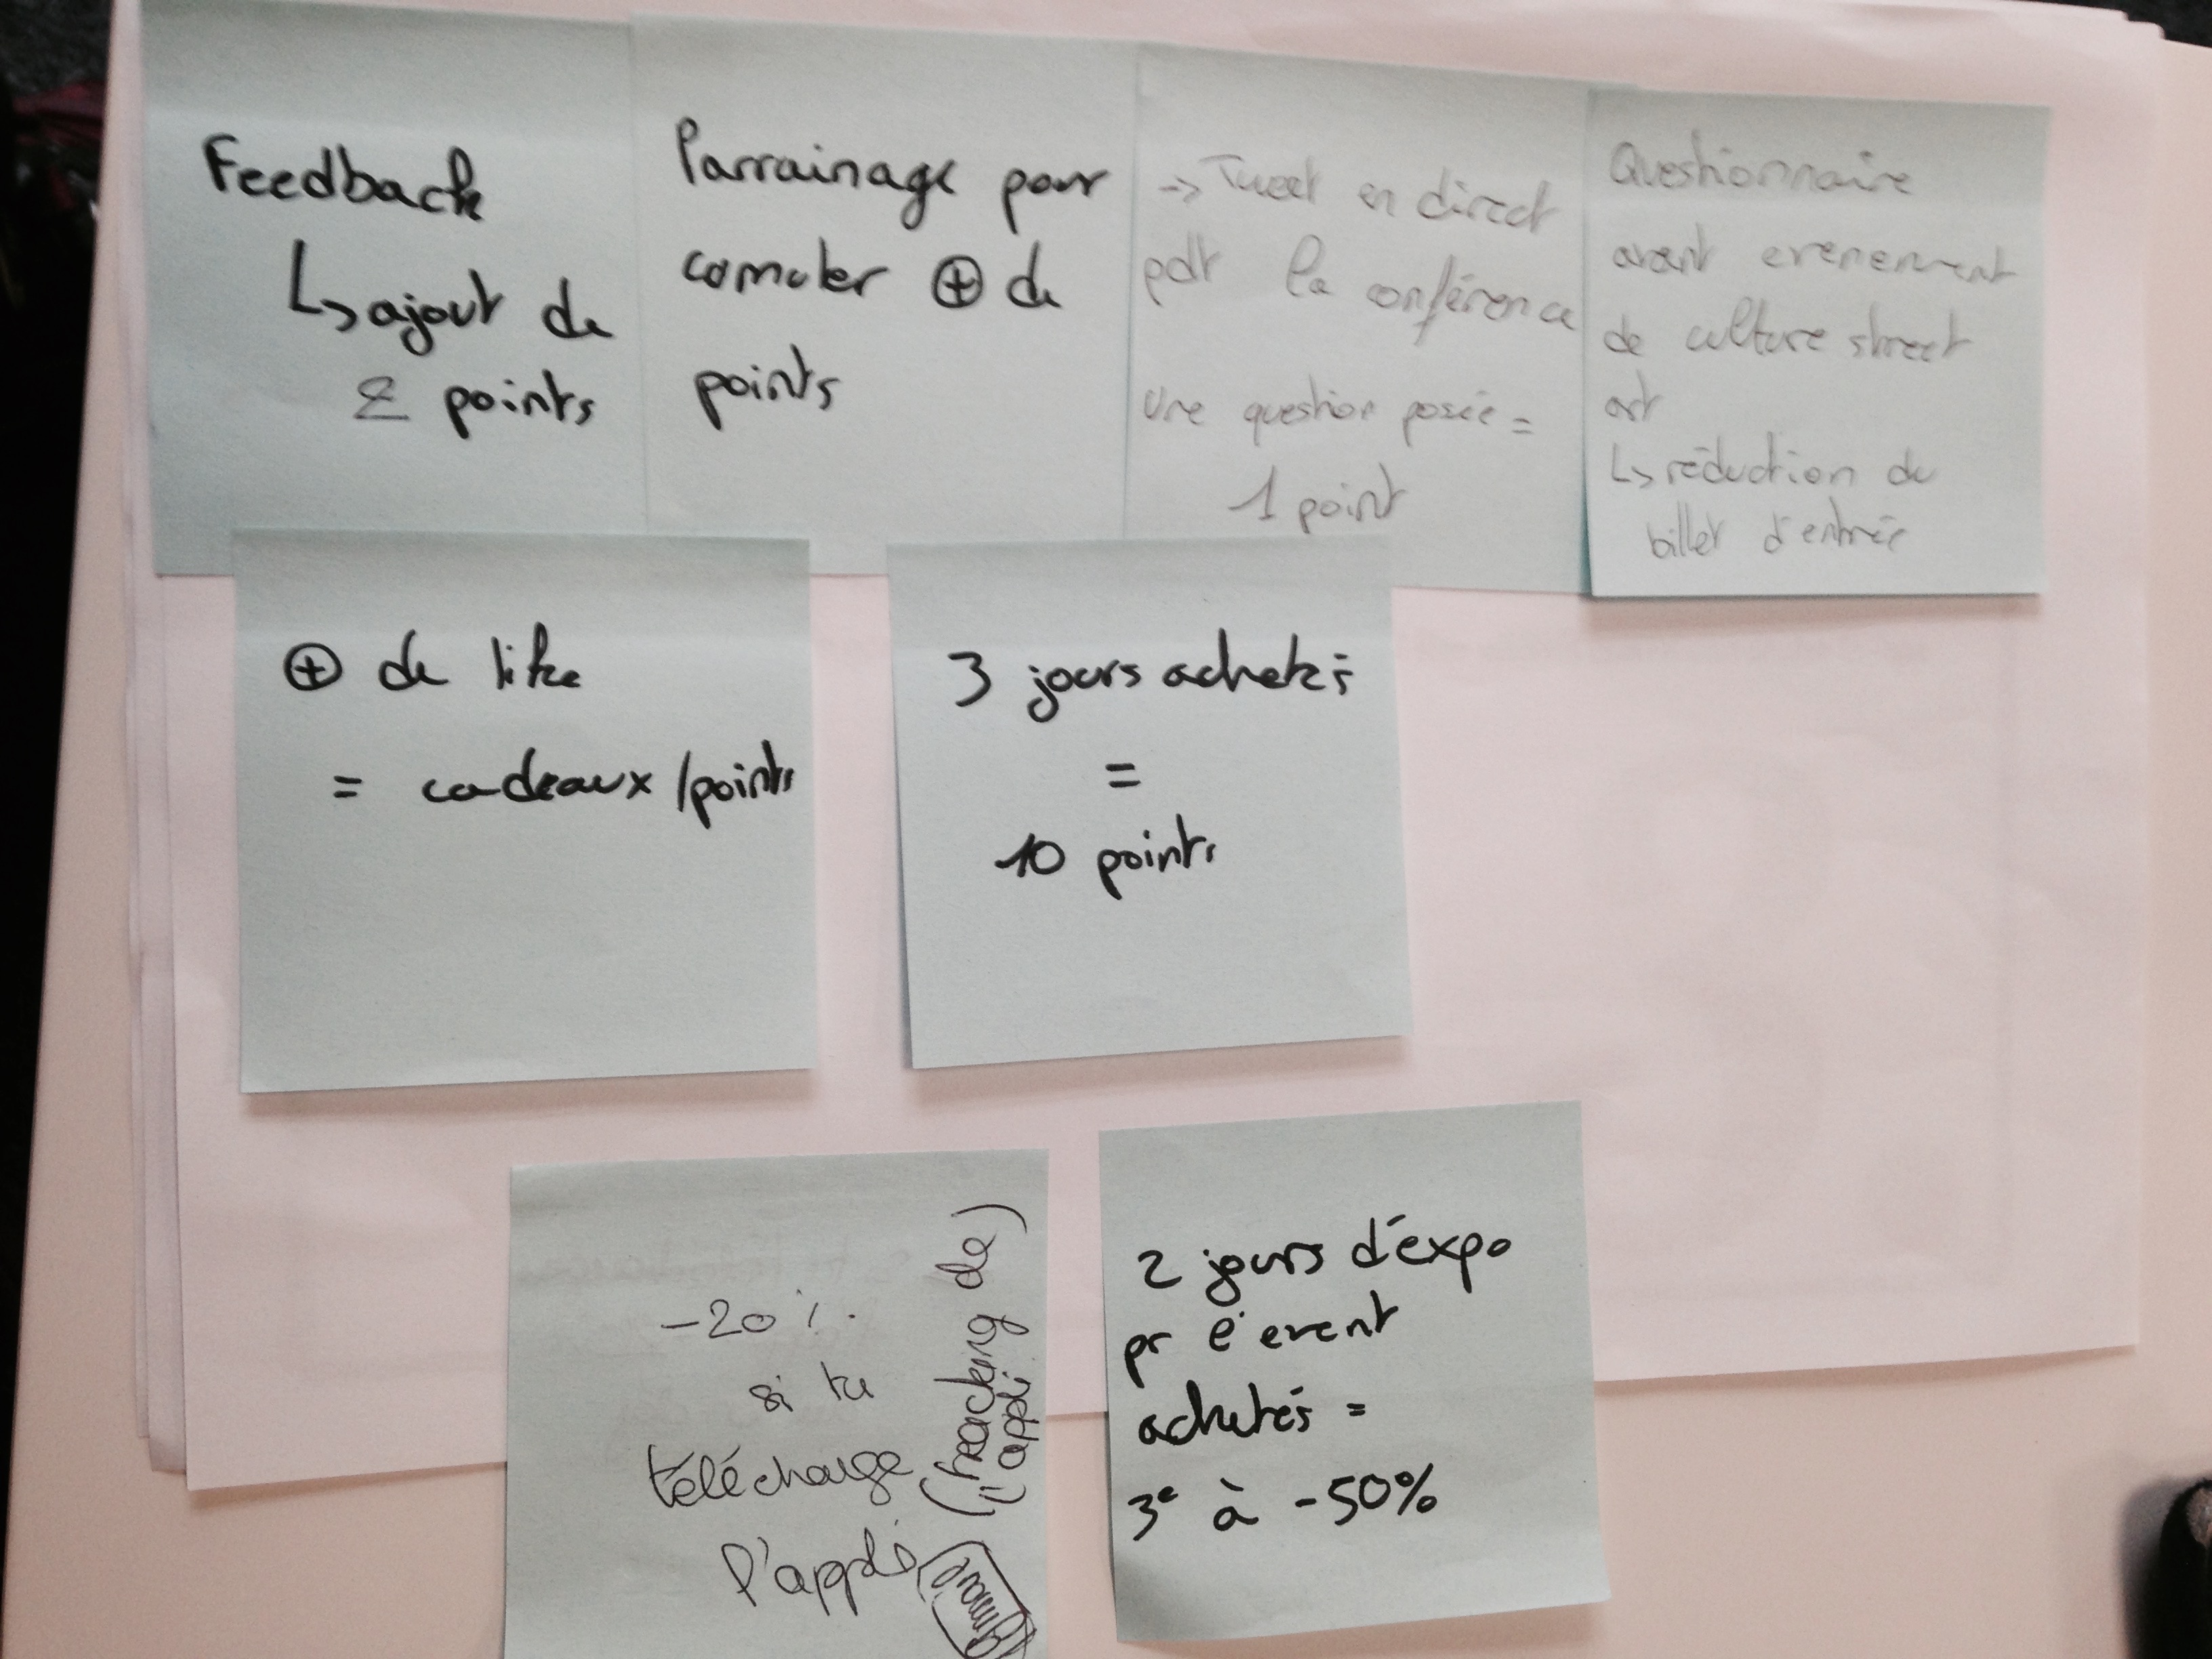 Feedback
↳ ajout de
2 points
Parrainage pour
comuler ⊕ de
points
-> Tweet en direct
pdt la conférence
Une question posée =
1 point
Questionnaire
avant evenement
de culture street
art
↳ réduction du
billet d'entrée
⊕ de like
= cadeaux /points
3 jours achetés
=
10 points
-20%.
si tu
télécharge
l'appli
(tracking de
l'appli)
2 jours d'expo
pr l'event
achetés =
3e à -50%